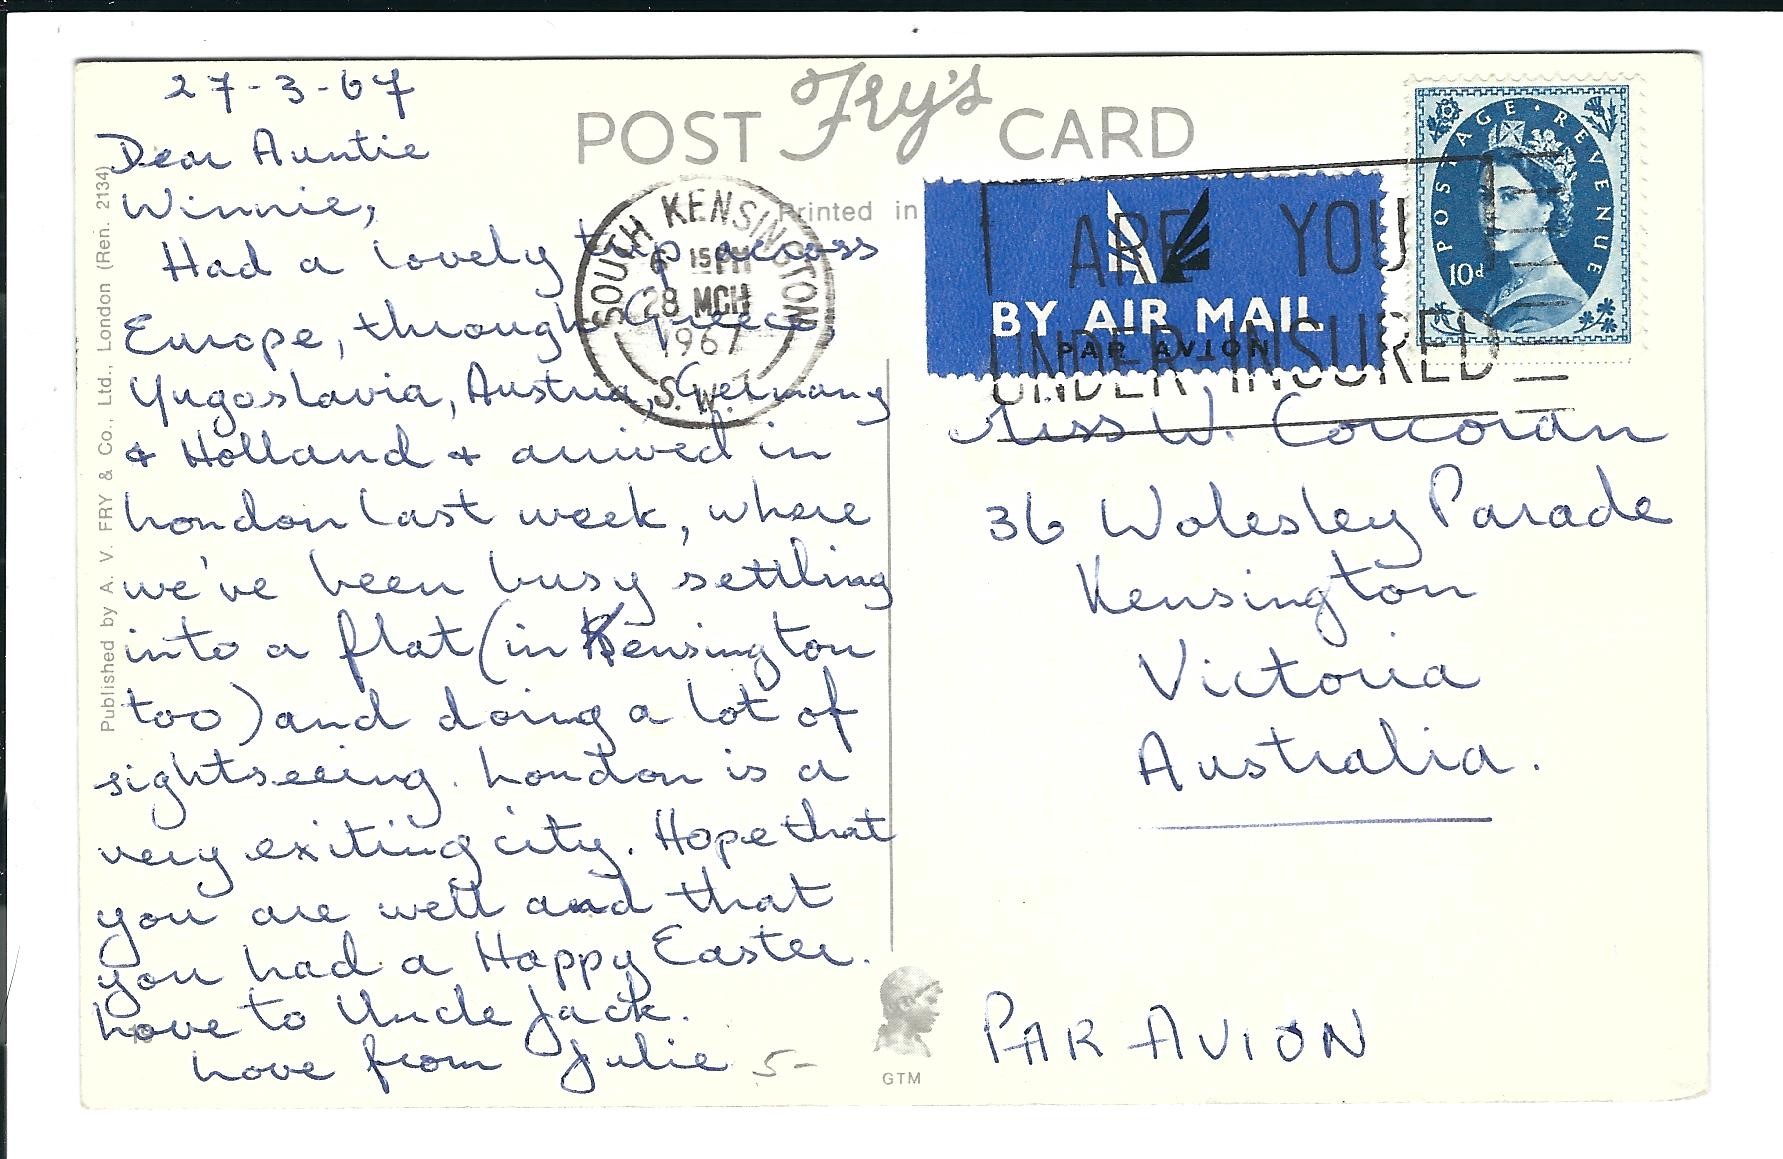 27-3-67
Dear Auntie
Winnie,
Had a lovely trip across
Europe, through Greece,
Yugoslavia, Austria, Germany
& Holland & arrived in
London last week, where
we've been busy settling
into a flat (in Kensington
too) and doing a lot of
sightseeing. London is a
very exiting city. Hope that
you are well and that
you had a Happy Easter.
Love to Uncle Jack.
Love from Julie
5-
POST Fry's CARD
Printed in
Published by A. V. FRY & Co., Ltd., London (Ren. 2134)
SOUTH KENSINGTON
6 15 PM
28 MCH
1967
S.W.7
BY AIR MAIL
PAR AVION
ARE YOU
UNDER-INSURED
POSTAGE · REVENUE
10d
Miss W. Corcoran
36 Wolesley Parade
Kensington
Victoria
Australia.
GTM
PAR AVION